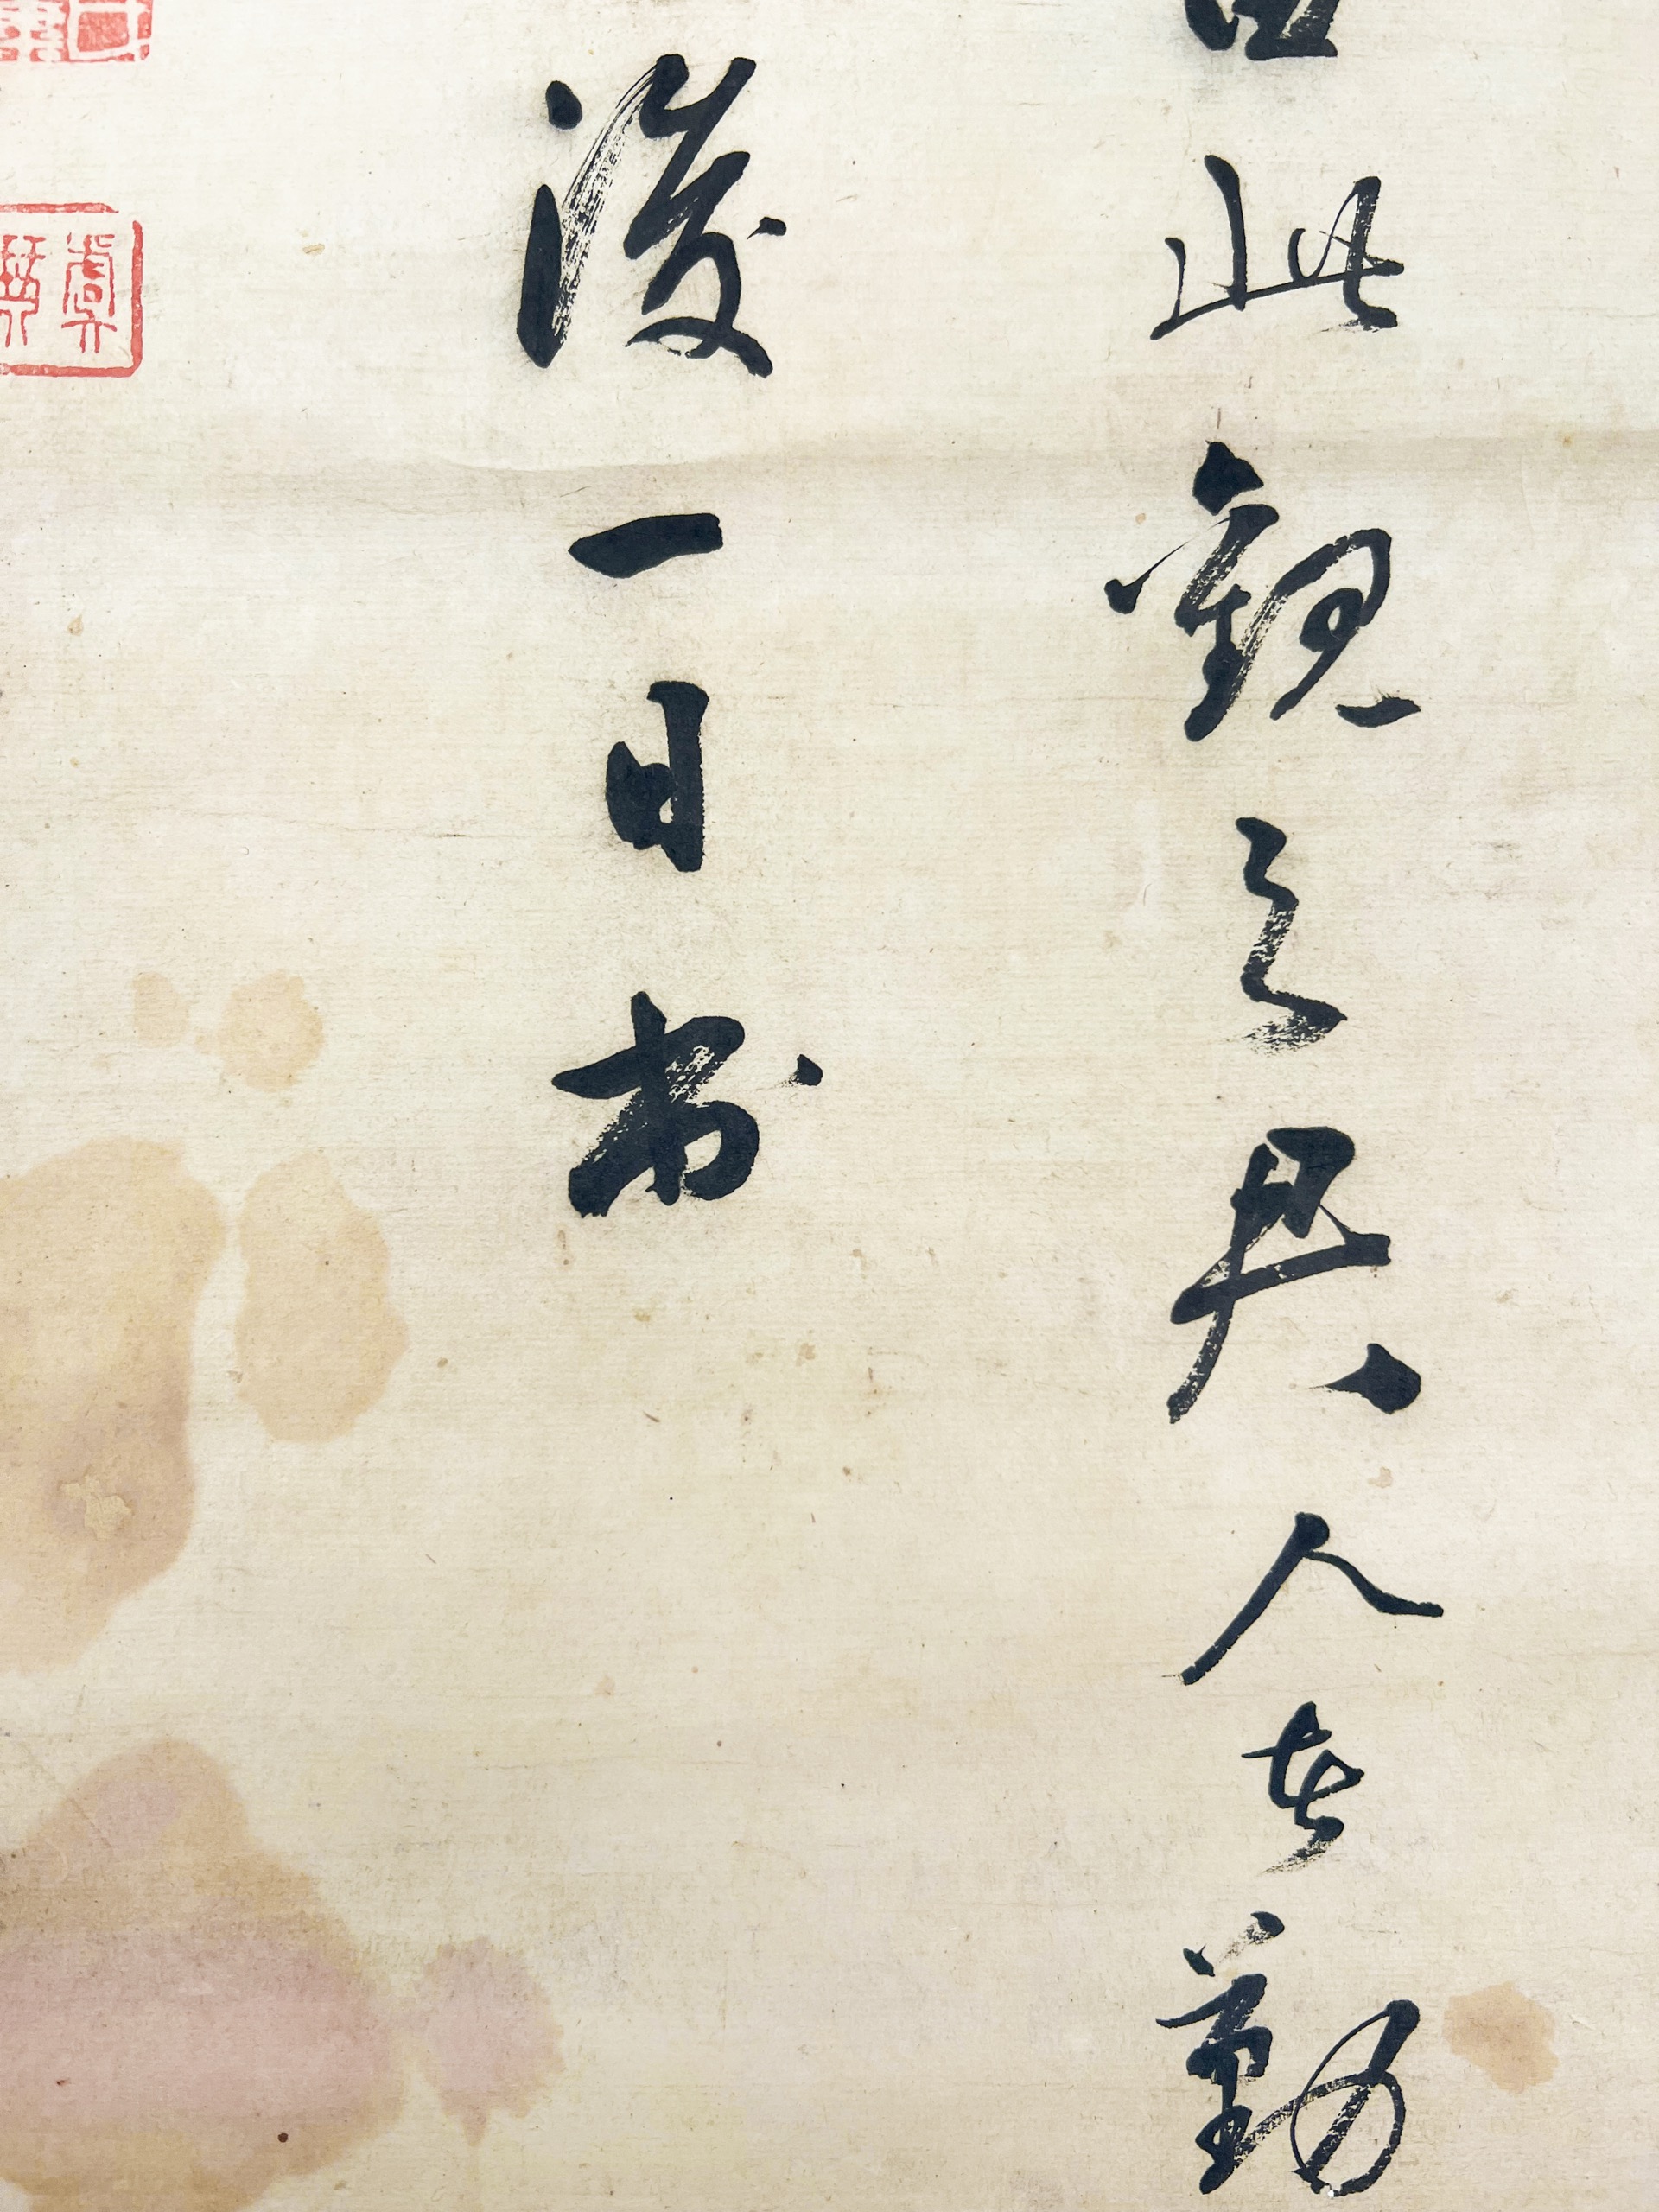 此觀之具人在勤
後一日書